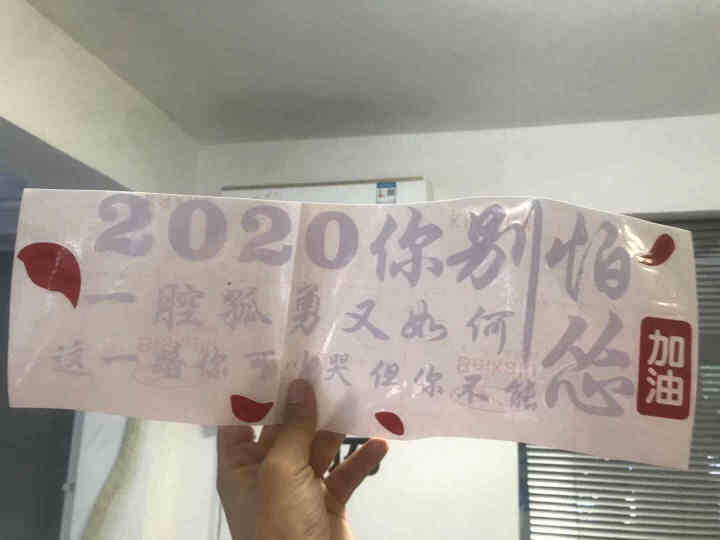 2020你别怕
一腔孤勇又如何
这一路你可以哭但你不能怂
加油